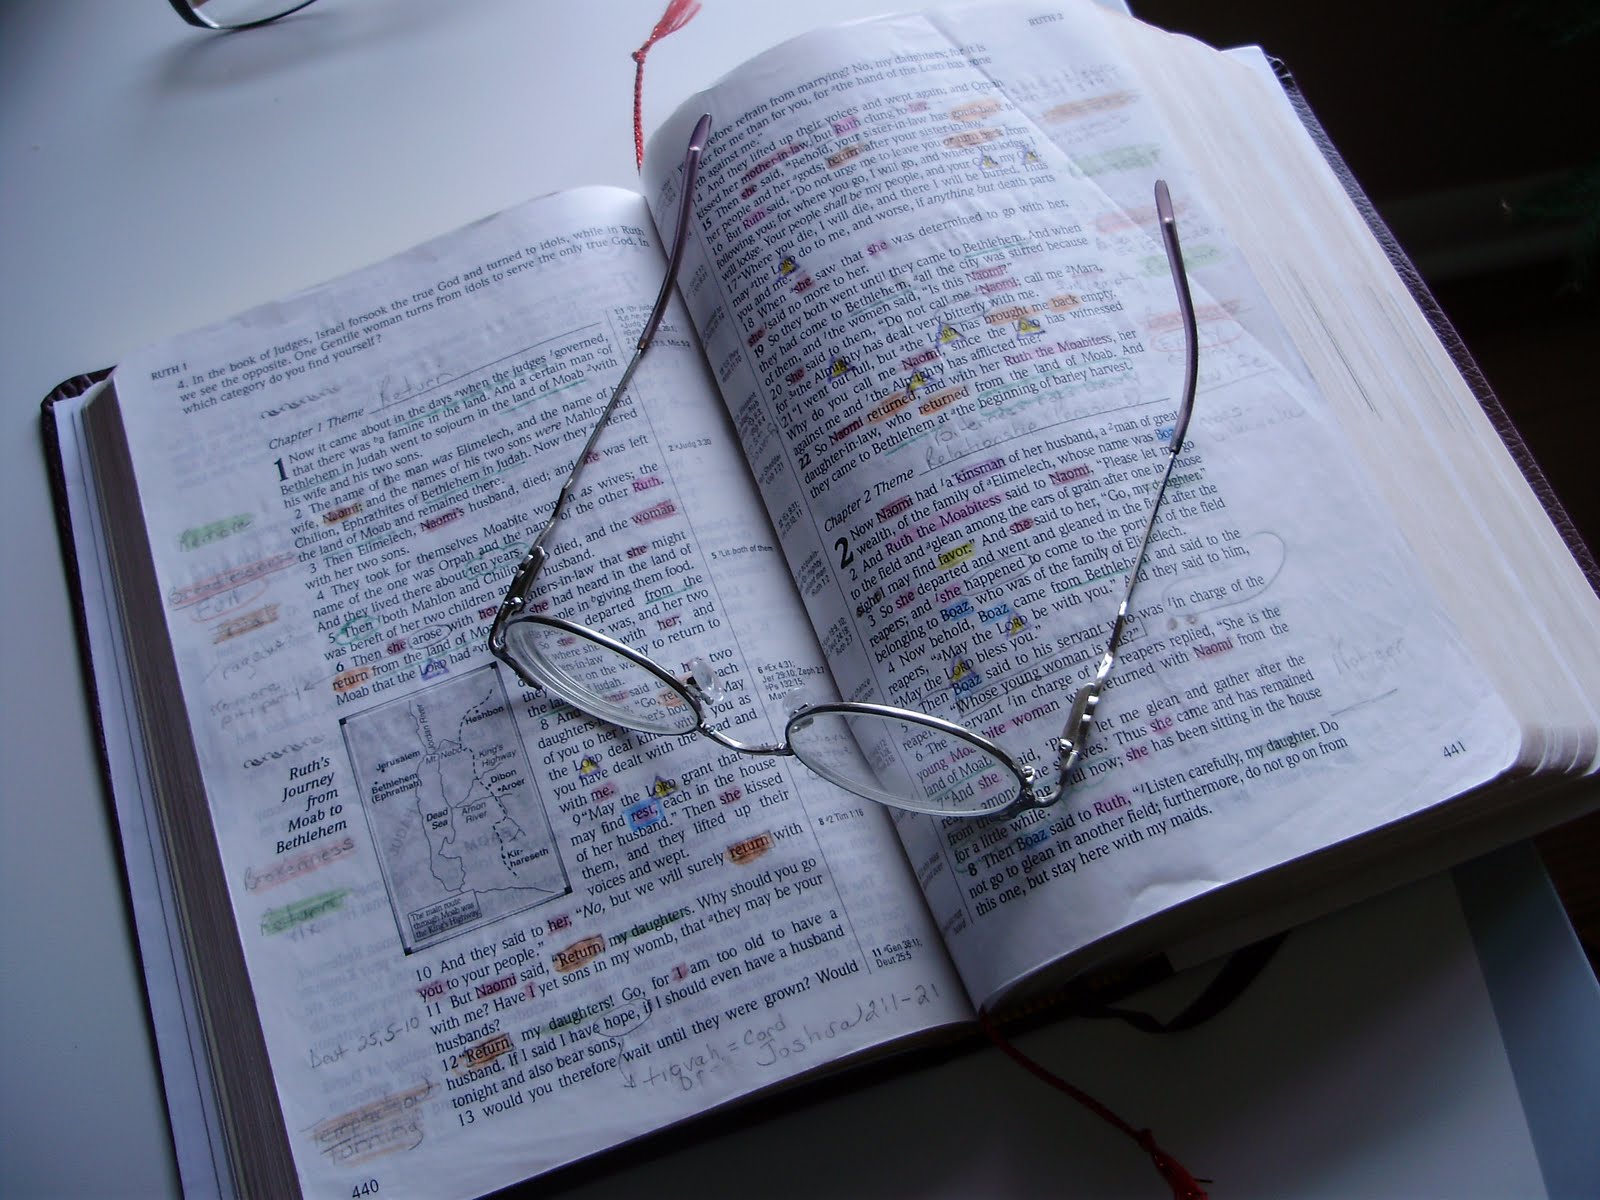 RUTH 1
4. In the book of Judges, Israel forsook the true God and turned to idols, while in Ruth
we see the opposite. One Gentile woman turns from idols to serve the only true God. In
which category do you find yourself?
Chapter 1 Theme Return
1 Now it came about in the days when the judges governed,
that there was a famine in the land. And a certain man of
Bethlehem in Judah went to sojourn in the land of Moab with
his wife and his two sons.
2 The name of the man was Elimelech, and the name of his
wife, Naomi; and the names of his two sons were Mahlon and
Chilion, Ephrathites of Bethlehem in Judah. Now they entered
the land of Moab and remained there.
3 Then Elimelech, Naomi's husband, died; and she was left
with her two sons.
4 They took for themselves Moabite women as wives; the
name of the one was Orpah and the name of the other Ruth.
And they lived there about ten years.
5 Then both Mahlon and Chilion died, and the woman
was bereft of her two children and her husband.
6 Then she arose with her daughters-in-law that she might
return from the land of Moab, for she had heard in the land of
Moab that the LORD had
people in giving them food.
departed from the
was, and her two
with her; and
to return to
the land of Judah.
8 And
said to her two
daughters-in-law, "Go, return each
of you to her mother's house. May
the LORD deal kindly with you as
you have dealt with the dead and
with me.
9 "May the LORD grant that you
may find rest, each in the house
of her husband." Then she kissed
them, and they lifted up their
voices and wept.
10 And they said to her, "No, but we will surely return with
you to your people."
11 But Naomi said, "Return, my daughters. Why should you go
with me? Have I yet sons in my womb, that they may be your
husbands?
12 "Return, my daughters! Go, for I am too old to have a
husband. If I said I have hope, if I should even have a husband
tonight and also bear sons,
13 would you therefore wait until they were grown? Would
tiqvah = cord
Joshua 2:1-21
Deut 25:5-10
Brokenness
Turning
Ruth's
Journey
from
Moab to
Bethlehem
Jerusalem
Bethlehem
(Ephrathah)
Jordan River
Mt. Nebo
Heshbon
King's
Highway
Dibon
Aroer
Arnon
River
Dead
Sea
MOAB
Kir-
hareseth
The main route
through Moab was
the King's Highway.
2 Judg 3:30
5 Lit both of them
6 Ex 4:31;
Jer 29:10; Zeph 2:7
Ps 132:15;
8 2 Tim 1:16
11 Gen 38:11;
Deut 25:5
440
RUTH 2
refrain from marrying? No, my daughters; for it is
harder for me than for you, for the hand of the LORD has gone
forth against me."
14 And they lifted up their voices and wept again; and Orpah
kissed her mother-in-law, but Ruth clung to her.
15 Then she said, "Behold, your sister-in-law has gone back to
her people and her gods; return after your sister-in-law."
16 But Ruth said, "Do not urge me to leave you or turn back from
following you; for where you go, I will go, and where you lodge, I
will lodge. Your people shall be my people, and your God, my God.
17 "Where you die, I will die, and there I will be buried. Thus
may the LORD do to me, and worse, if anything but death parts
you and me."
18 When she saw that she was determined to go with her,
she said no more to her.
19 So they both went until they came to Bethlehem. And when
they had come to Bethlehem, all the city was stirred because
of them, and the women said, "Is this Naomi?"
20 She said to them, "Do not call me Naomi; call me Mara,
for the Almighty has dealt very bitterly with me.
21 "I went out full, but the LORD has brought me back empty.
Why do you call me Naomi, since the LORD has witnessed
against me and the Almighty has afflicted me?"
22 So Naomi returned, and with her Ruth the Moabitess, her
daughter-in-law, who returned from the land of Moab. And
they came to Bethlehem at the beginning of barley harvest.
Chapter 2 Theme Relationship
2 Now Naomi had a kinsman of her husband, a man of great
wealth, of the family of Elimelech, whose name was Boaz.
2 And Ruth the Moabitess said to Naomi, "Please let me go
to the field and glean among the ears of grain after one in whose
sight I may find favor." And she said to her, "Go, my daughter."
3 So she departed and went and gleaned in the field after the
reapers; and she happened to come to the portion of the field
belonging to Boaz, who was of the family of Elimelech.
4 Now behold, Boaz came from Bethlehem and said to the
reapers, "May the LORD be with you." And they said to him,
"May the LORD bless you."
5 Then Boaz said to his servant who was in charge of the
reapers, "Whose young woman is this?"
6 The servant in charge of the reapers replied, "She is the
young Moabite woman who returned with Naomi from the
land of Moab.
7 "And she said, 'Please let me glean and gather after the
reapers among the sheaves.' Thus she came and has remained
from the morning until now; she has been sitting in the house
for a little while."
8 Then Boaz said to Ruth, "Listen carefully, my daughter. Do
not go to glean in another field; furthermore, do not go on from
this one, but stay here with my maids.
441